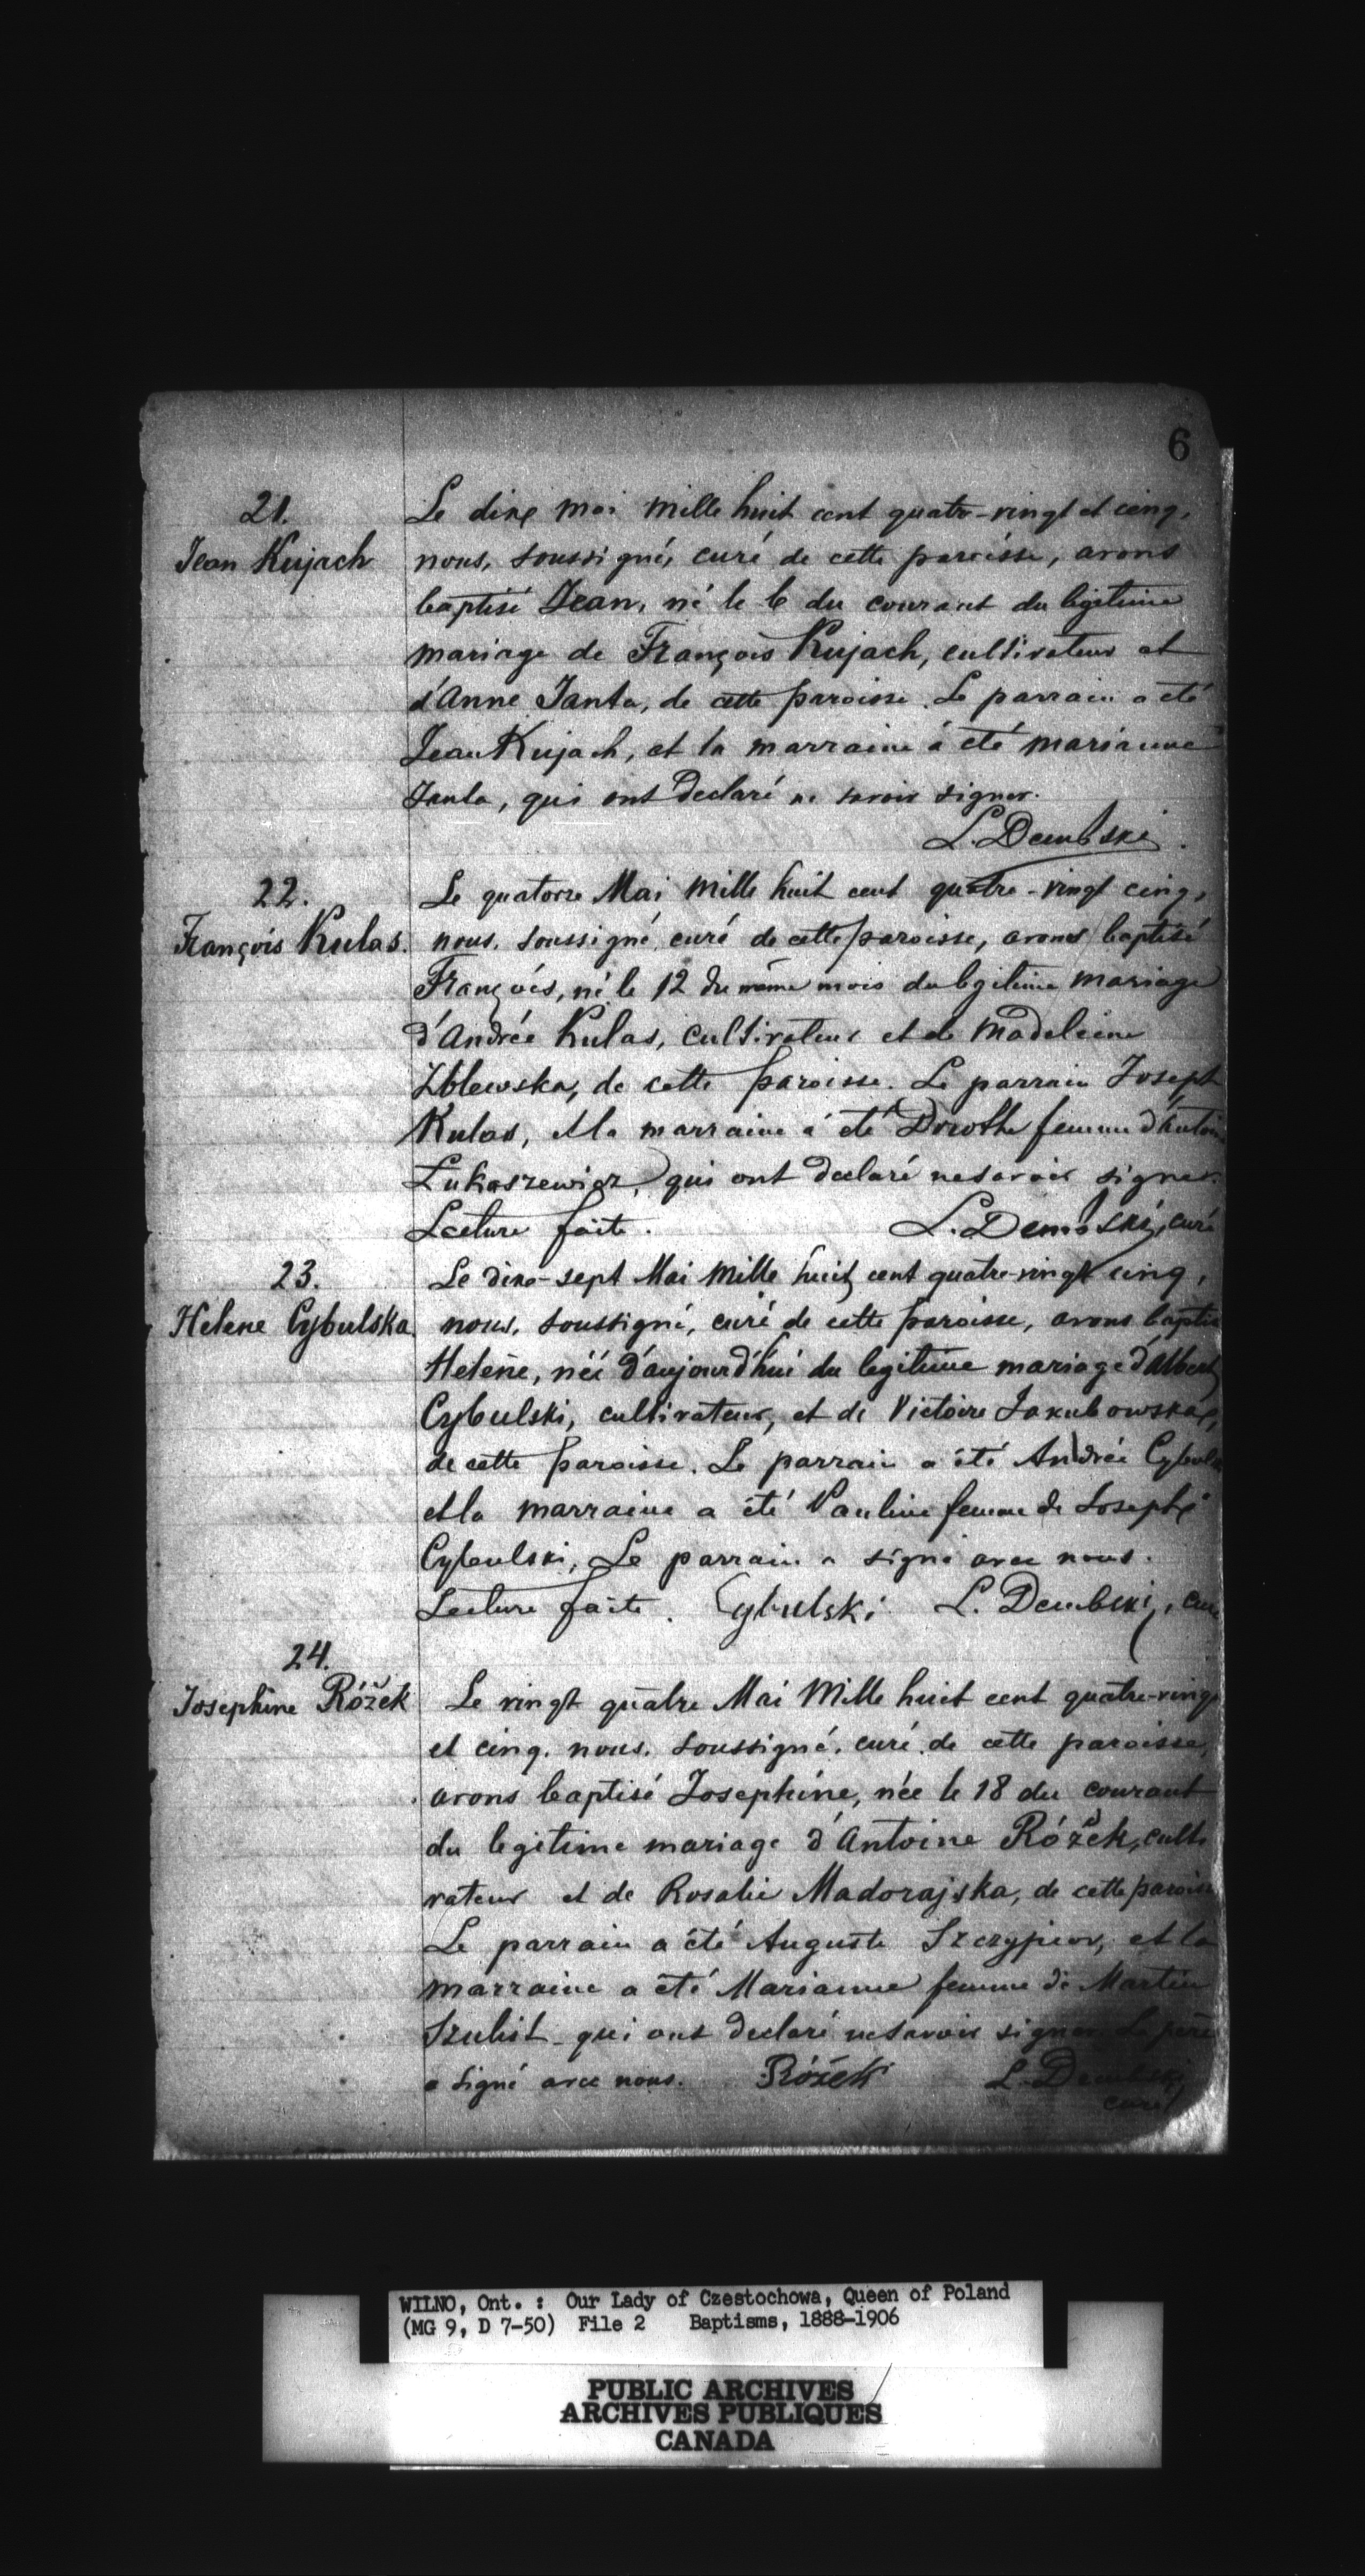 6
21.
Jean Kujach
Le dix mai mille huit cent quatre-vingt et cinq,
nous, soussigné, curé de cette paroisse, avons
baptisé Jean, né le 6 du courant du légitime
mariage de François Kujach, cultivateur et
d'Anne Janta, de cette paroisse. Le parrain a été
Jean Kujach, et la marraine á été Marianne
Janta, qui ont declaré ne savoir signer.
L. Dembski.
22.
François Kulas.
Le quatorze Mai mille huit cent quatre-vingt cinq,
nous, soussigné, curé de cette paroisse, avons baptisé
François, né le 12 du même mois du legitime mariage
d'Andrée Kulas, cultivateur et de Madeleine
Zblewska, de cette paroisse. Le parrain Joseph
Kulas, et la marraine á été Dorothe femme d'Antoine
Lukaszewicz, qui ont declaré ne savoir signer.
Lecture faite. L. Dembski, curé
23.
Helene Cybulska
Le dix-sept Mai mille huit cent quatre-vingt cinq,
nous, soussigné, curé de cette paroisse, avons baptisé
Helene, née d'aujourd'hui du legitime mariage d'Albert
Cybulski, cultivateur, et de Victoire Jakubowska,
de cette paroisse. Le parrain a été Andrée Cybulski
et la marraine a été Pauline femme de Joseph
Cybulski, Le parrain a signé avec nous.
Lecture faite. Cybulski L. Dembski, curé
24.
Josephine Różek
Le vingt quatre Mai Mille huit cent quatre-vingt
et cinq, nous, soussigné, curé de cette paroisse,
avons baptisé Josephine, née le 18 du courant
du legitime mariage d'Antoine Różek, culti
vateur et de Rosalie Madorajska, de cette paroisse
Le parrain a été Auguste Szczypior, et la
marraine a été Marianne femme de Martin
Szulist qui ont declaré ne savoir signer. Le père
a signé avec nous. Różek L. Dembski
curé
WILNO, Ont. : Our Lady of Czestochowa, Queen of Poland
(MG 9, D 7-50) File 2 Baptisms, 1888-1906
PUBLIC ARCHIVES
ARCHIVES PUBLIQUES
CANADA